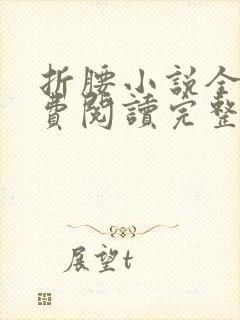 折腰小说全
費閱讀完整
展望t